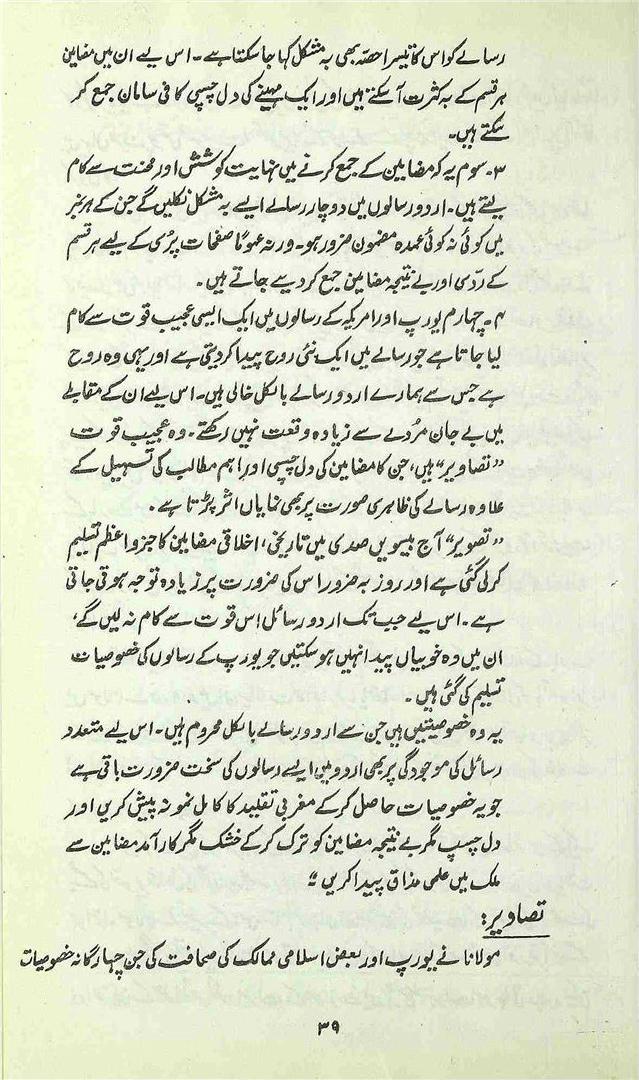 رسالے کو اس کا تیسرا حصّہ بھی بہ مشکل کہا جا سکتا ہے۔ اس لیے ان میں مضامین
ہر قسم کے بہ کثرت آ سکتے ہیں اور ایک مہینے کی دل چسپی کا فی سامان جمع کر
سکتے ہیں۔
۳۔ سوم یہ کہ مضامین کے جمع کرنے میں نہایت کوشش اور محنت سے کام
لیتے ہیں۔ اردو رسالوں میں دو چار رسالے ایسے بہ مشکل نکلیں گے جن کے ہر نمبر
میں کوئی نہ کوئی عمدہ مضمون ضرور ہو۔ ورنہ عموماً صفحات پُری کے لیے ہر قسم
کے ردّی اور بے نتیجہ مضامین جمع کر دیے جاتے ہیں۔
۴۔ چہارم یورپ اور امریکہ کے رسالوں میں ایک ایسی عجیب قوت سے کام
لیا جاتا ہے جو رسالے میں ایک نئی روح پیدا کر دیتی ہے اور یہی وہ روح
ہے جس سے ہمارے اردو رسالے بالکل خالی ہیں۔ اس لیے ان کے مقابلے
میں بے جان مُردے سے زیادہ وقعت نہیں رکھتے۔ وہ عجیب قوت
”تصاویر“ ہیں، جن کا مضامین کی دل چسپی اور اہم مطالب کی تسہیل کے
علاوہ رسالے کی ظاہری صورت پر بھی نمایاں اثر پڑتا ہے۔
”تصویر“ آج بیسویں صدی میں تاریخی، اخلاقی مضامین کا جزو اعظم تسلیم
کر لی گئی ہے اور روز بہ ضرور اس کی ضرورت پر زیادہ توجہ ہوتی جاتی
ہے۔ اس لیے جب تک اردو رسائل اس قوت سے کام نہ لیں گے،
ان میں وہ خوبیاں پیدا نہیں ہو سکتیں جو یورپ کے رسالوں کی خصوصیات
تسلیم کی گئی ہیں۔
یہ وہ خصوصیتیں ہیں جن سے اردو رسالے بالکل محروم ہیں۔ اس لیے متعدد
رسائل کی موجودگی پر بھی اردو میں ایسے رسالوں کی سخت ضرورت باقی ہے
جو یہ خصوصیات حاصل کر کے مغربی تقلید کا کامل نمونہ پیش کریں اور
دل چسپ مگر بے نتیجہ مضامین کو ترک کر کے خشک مگر کارآمد مضامین سے
ملک میں علمی مذاق پیدا کریں“
تصاویر:
مولانا نے یورپ اور بعض اسلامی ممالک کی صحافت کی جن چہارگانہ خصوصیات
۳۹